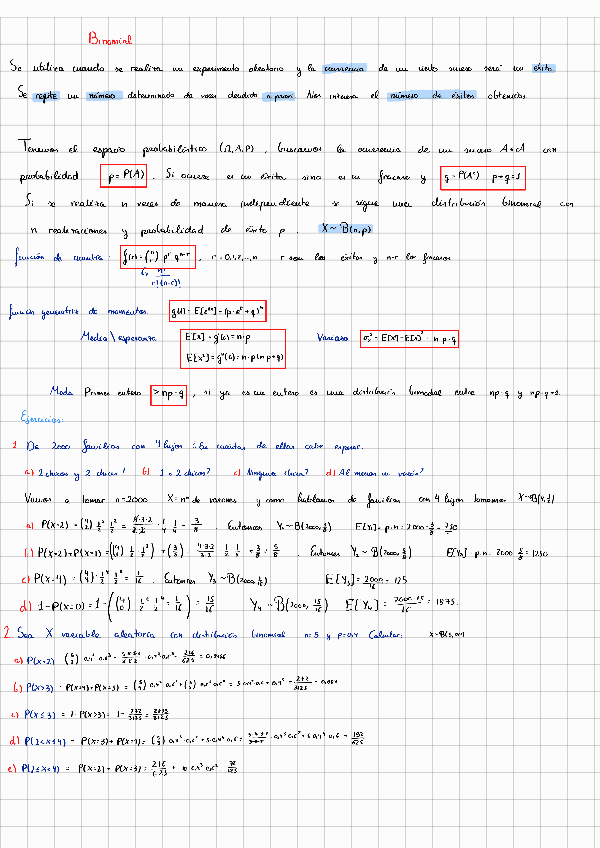 Binomial
Se utiliza cuando se realiza un experimento aleatorio y la ocurrencia de un cierto suceso será un éxito.
Se repite un número determinado de veces decidido a priori. Nos interesa el número de éxitos obtenidos.
Tenemos el espacio probabilístico (Ω, A, P), buscamos la ocurrencia de un suceso A ∈ A con
probabilidad p = P(A). Si ocurre es un éxito sino es un fracaso y q = P(Aᶜ) p+q=1
Si se realiza n veces de manera independiente se sigue una distribución binomial con
n realizaciones y probabilidad de éxito p. X ~ B(n,p)
función de cuantía: f(r) = (n r) p^r q^(n-r), r = 0,1,2,...,n r son los éxitos y n-r los fracasos
n! / r!(n-r)!
función generatriz de momentos g(t) = E[e^(tx)] = (p·e^t + q)^n
Media \ esperanza E[X] = g'(0) = n·p Varianza σ² = E[X²] - E[X]² = n·p·q
E[X²] = g''(0) = n·p(np+q)
Moda Primer entero > np-q, si ya es un entero es una distribución bimodal entre np-q y np-q+1.
Ejercicios:
1 De 2000 familias con 4 hijos ¿En cuántas de ellas cabe esperar:
a) 2 chicos y 2 chicas? b) 1 o 2 chicos? c) Ninguna chica? d) Al menos un varón?
Vamos a tomar n=2000 X = nº de varones y como hablamos de familias con 4 hijos tomamos X~B(4,1/2)
a) P(X=2) = (4 2) 1/2² 1/2² = 4·3·2/2·2 · 1/4 · 1/4 = 3/8. Entonces Y₁ ~ B(2000, 3/8) E[Y₁] = p·n = 2000·3/8 = 750
b) P(X=2)+P(X=1) = 3/8 = 5/8. Entonces Y₂ ~ B(2000, 5/8) E[Y₂] = p·n = 2000 5/8 = 1250
c) P(X=4) = (4 4)·1/2⁴ 1/2⁰ = 1/16. Entonces Y₃ ~ B(2000, 1/16) E[Y₃] = 2000/16 = 125
d) 1-P(X=0) = 1-((4 0) 1/2⁰ 1/2⁴ = 1/16) = 15/16 Y₄ ~ B(2000, 15/16) E[Y₄] = 2000·15/16 = 1875.
2. Sea X variable aleatoria con distribución binomial n=5 y p=0,4 Calcular: X~B(5,0,4)
a) P(X=2) (5 2) 0,4² 0,6³ = 0,4² 0,6³ = 216/625 = 0,3456
b) P(X>3) = P(X=4)+P(X=5) = (5 4) 0,4⁴ 0,6¹ + (5 5) 0,4⁵ 0,6⁰ = 5·0,4⁴·0,6 + 0,4⁵ = 272/3125 = 0,087
c) P(X≤3) = 1-P(X>3) = 1- 272/3125 = 2853/3125
d) P(2<X≤4) = P(X=3)+P(X=4) = (5 3) 0,4³ 0,6² + 5·0,4⁴ 0,6 = 192/625
e) P(2≤X<4) = P(X=2) + P(X=3) = 216/625 + 10·0,4³ 0,6²